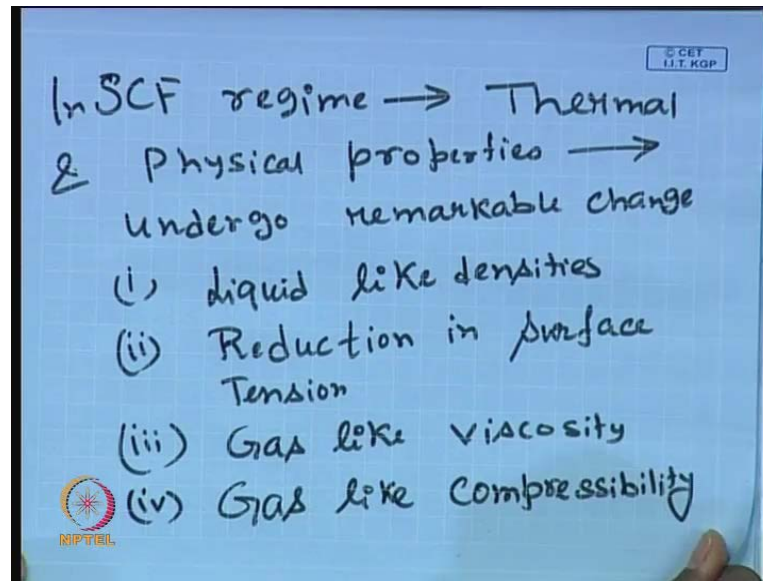 © CET
I.I.T. KGP
In SCF regime → Thermal
& Physical properties →
undergo remarkable change
(i) Liquid like densities
(ii) Reduction in surface
Tension
(iii) Gas like viscosity
(iv) Gas like compressibility
NPTEL